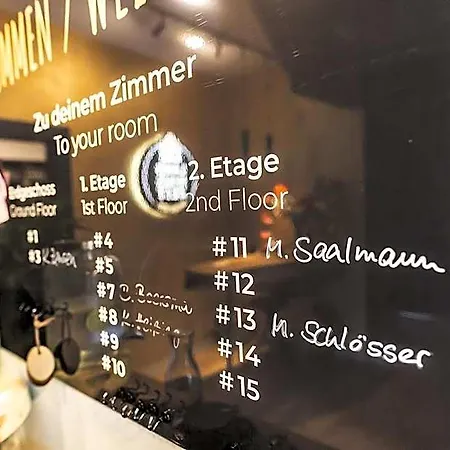 MMEN / WEL
Zu deinem Zimmer
To your room
Erdgeschoss
Ground Floor
#1
#3
1. Etage
1st Floor
#4
#5
#7
#8
#9
#10
2. Etage
2nd Floor
#11 M. Saalmann
#12
#13 M. Schlösser
#14
#15